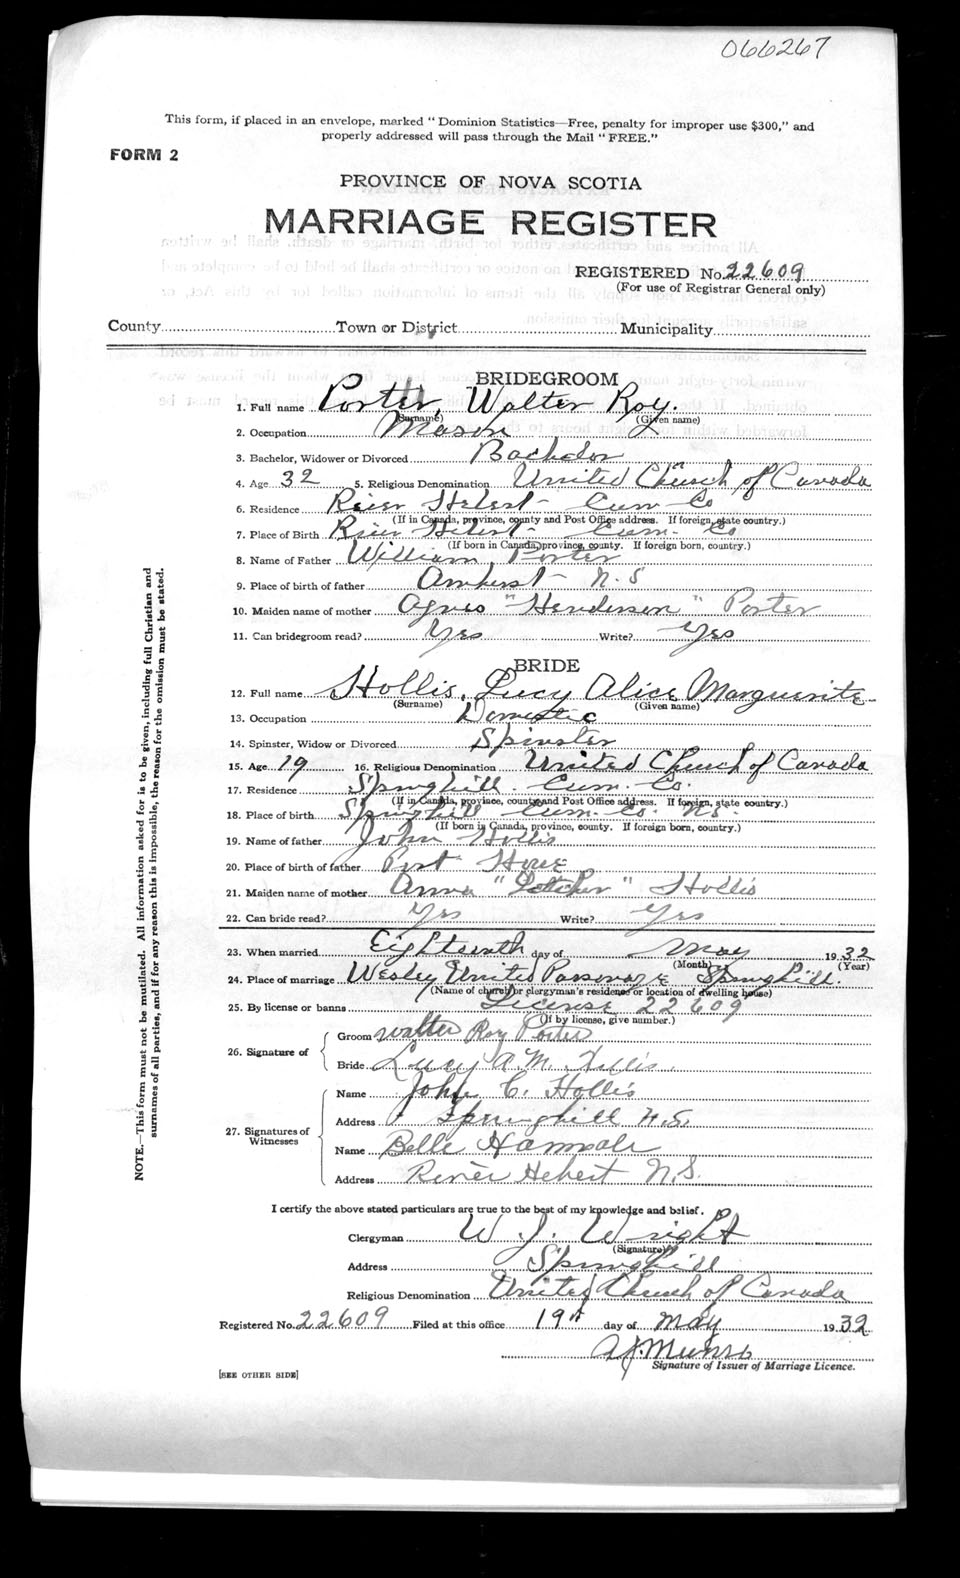 066267
This form, if placed in an envelope, marked "Dominion Statistics—Free, penalty for improper use $300," and
properly addressed will pass through the Mail "FREE."
FORM 2
PROVINCE OF NOVA SCOTIA
MARRIAGE REGISTER
REGISTERED No. 22609
(For use of Registrar General only)
County Town or District Municipality
BRIDEGROOM
1. Full name Porter, Walter Roy.
(Surname) (Given name)
2. Occupation Mason
3. Bachelor, Widower or Divorced Bachelor
4. Age 32 5. Religious Denomination United Church of Canada
6. Residence River Hebert - Cum. Co
(If in Canada, province, county and Post Office address. If foreign, state country.)
7. Place of Birth River Hebert - Cum. Co
(If born in Canada, province, county. If foreign born, country.)
8. Name of Father William Porter
9. Place of birth of father Amherst - N.S
10. Maiden name of mother Agnes "Henderson" Porter
11. Can bridegroom read? Yes Write? Yes
BRIDE
12. Full name Hollis, Lucy Alice Marguerite
(Surname) (Given name)
13. Occupation Domestic
14. Spinster, Widow or Divorced Spinster
15. Age 19 16. Religious Denomination United Church of Canada
17. Residence Springhill. Cum. Co.
(If in Canada, province, county and Post Office address. If foreign, state country.)
18. Place of birth Springhill Cum. Co. N.S.
(If born in Canada, province, county. If foreign born, country.)
19. Name of father John Hollis
20. Place of birth of father Port Howe
21. Maiden name of mother Anna "Letcher" Hollis
22. Can bride read? Yes Write? Yes
23. When married Eighteenth day of May 1932
(Month) (Year)
24. Place of marriage Wesley United Parsonage Springhill.
(Name of church or clergyman's residence or location of dwelling house)
25. By license or banns License 22609
(If by license, give number.)
26. Signature of
Groom Walter Roy Porter
Bride Lucy A. M. Hollis.
27. Signatures of Witnesses
Name John C. Hollis
Address Springhill N.S.
Name Belle
Address River Hebert N.S.
I certify the above stated particulars are true to the best of my knowledge and belief.
Clergyman W J. Wright
(Signature)
Address Springhill
Religious Denomination United Church of Canada
Registered No. 22609 Filed at this office 19th day of May 1932
A.J. Munro
Signature of Issuer of Marriage Licence.
[SEE OTHER SIDE]
NOTE.—This form must not be mutilated. All information asked for is to be given, including full Christian and
surnames of all parties, and if for any reason this is impossible, the reason for the omission must be stated.